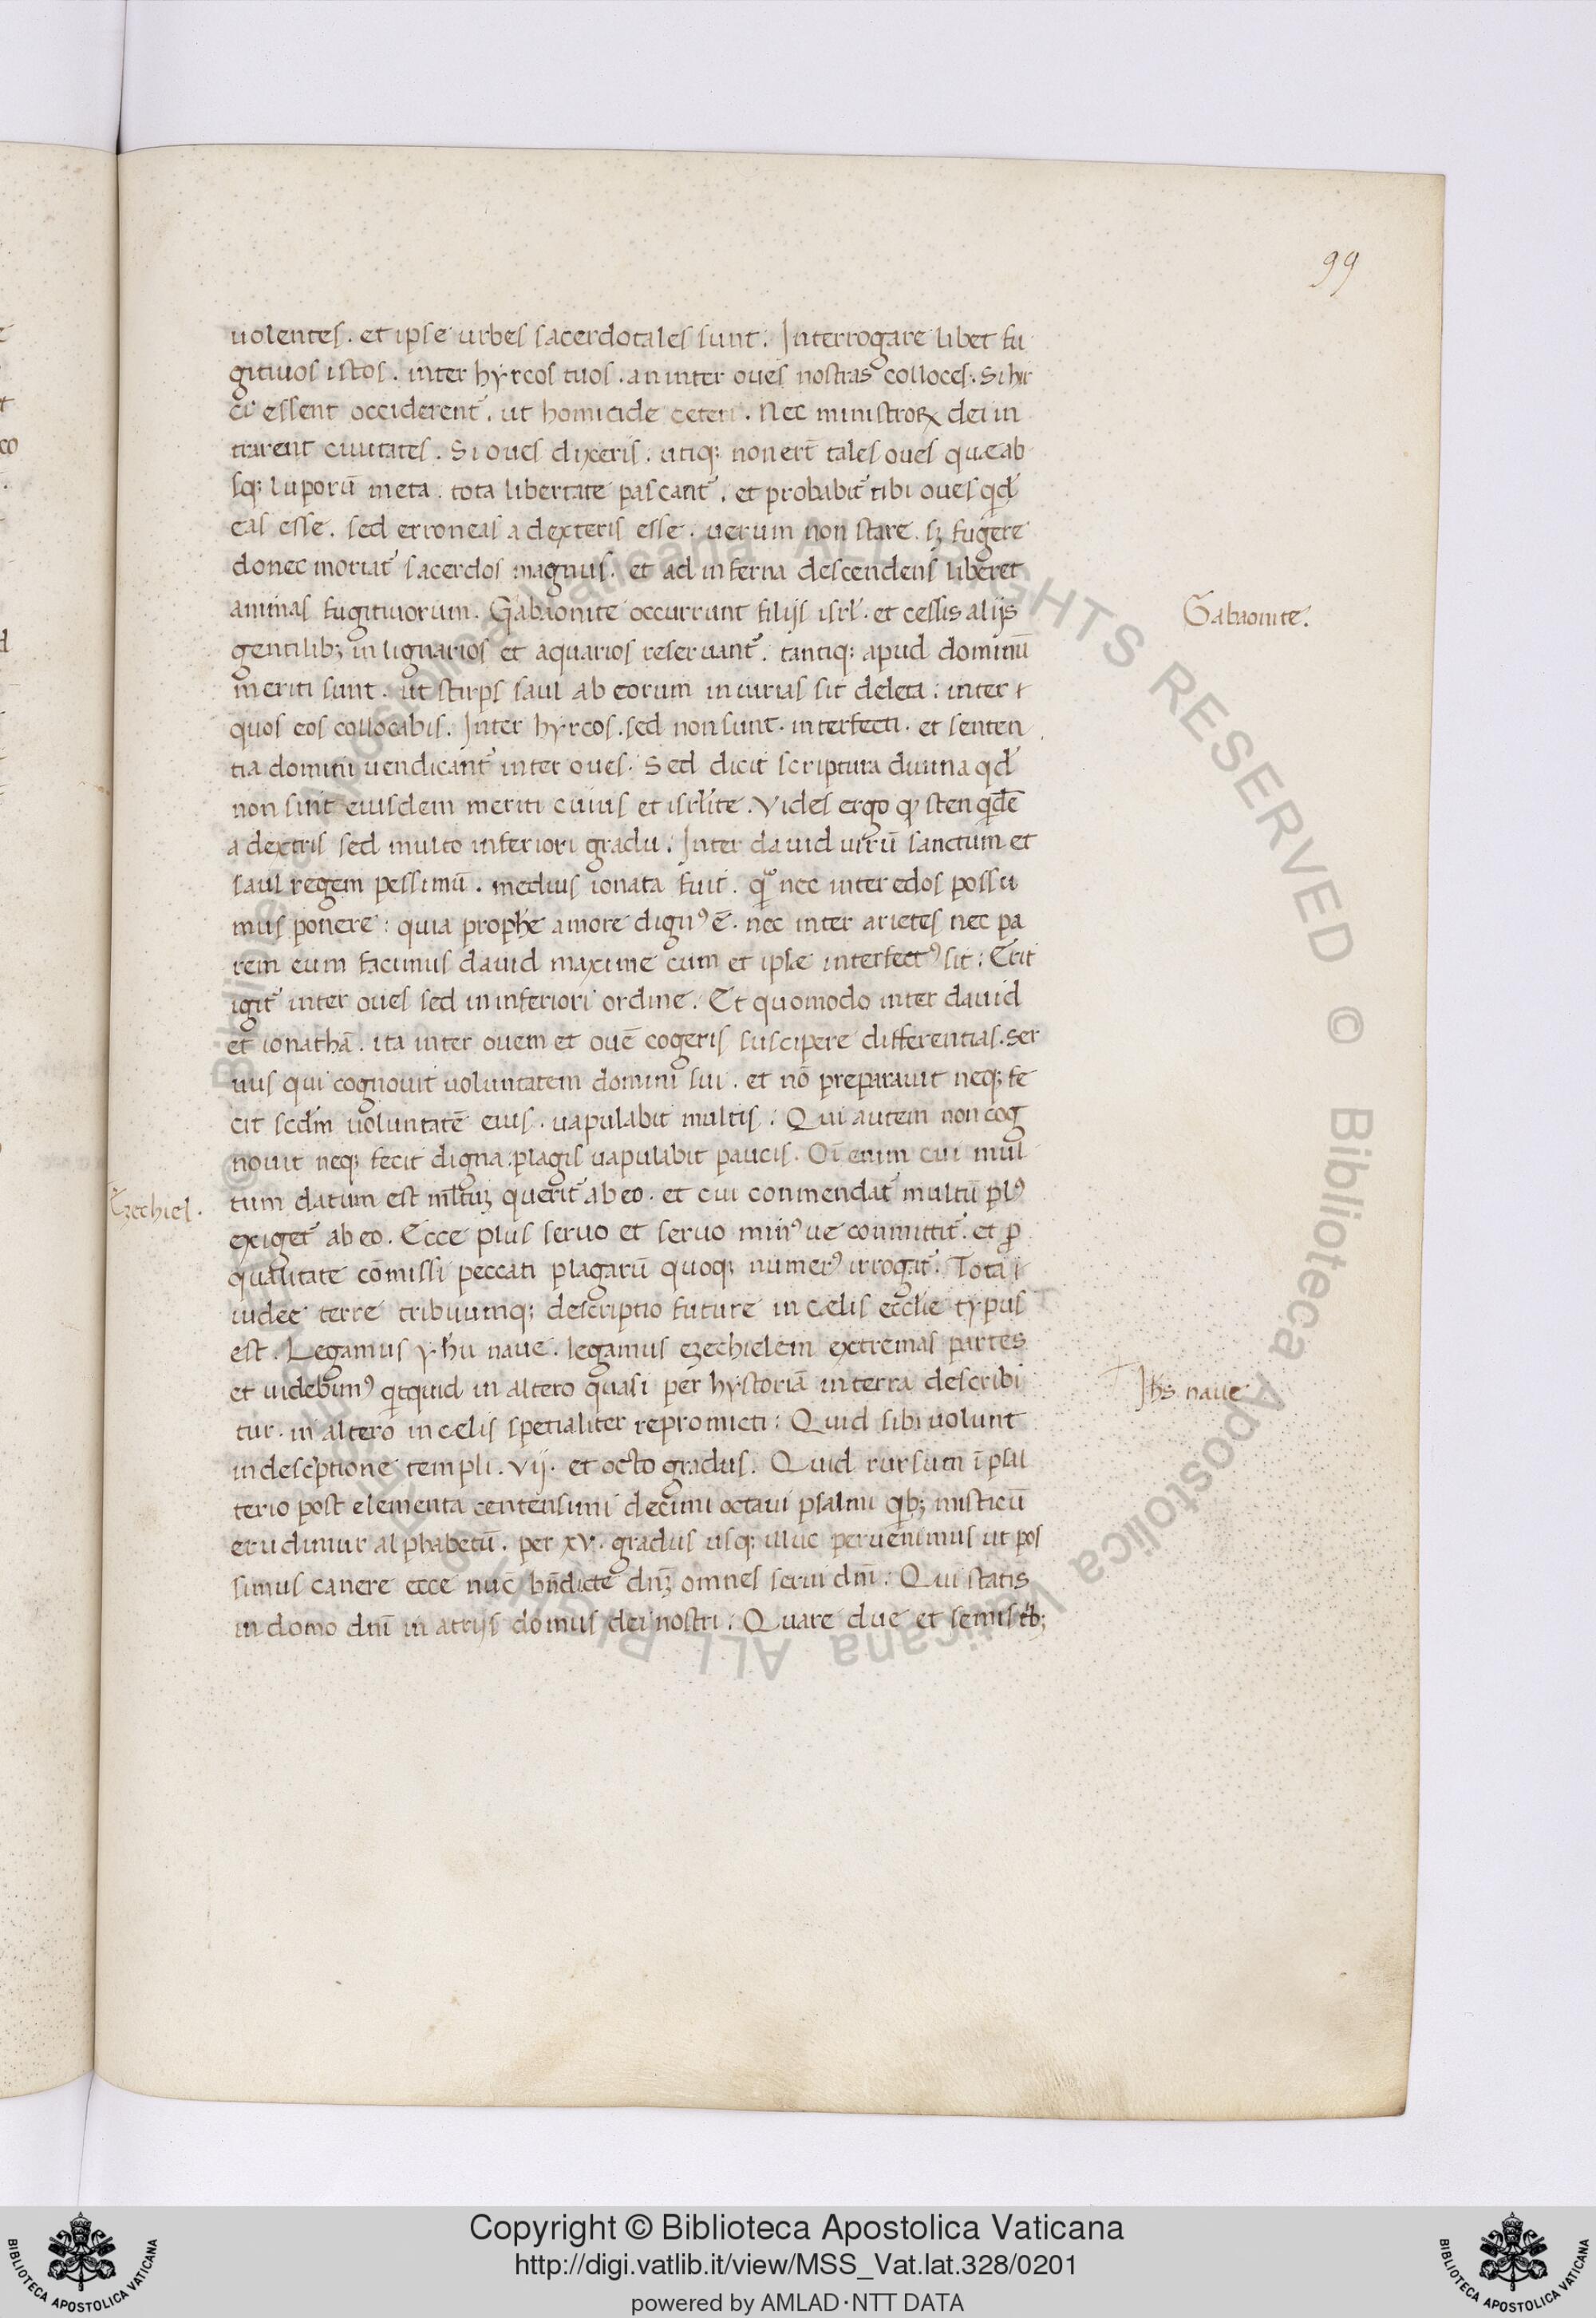 99
uolentes. et ipse urbes sacerdotales sunt. Interrogare libet fu
gitiuos istos. inter hyrcos tuos. an inter oues nostras colloces. Si hir
ci essent occiderent᷑. ut homicide ceteri. Nec ministroꝝ dei in
trarent ciuitates. Si oues dixeris. utiq; non er̄t tales oues quæ ab
sq; luporū meta. tota libertate pascant᷑. et probabit᷑ tibi oues qͥdē
eas esse. sed erroneas a dexteris esse. uerum non stare. sꝫ fugere
donec moriat᷑ sacerdos magnus. et ad inferna descendens liberet
animas fugitiuorum. Gabaonite occurrunt filijs isrl̓. et cessis alijs
Gabaonite.
gentilibꝫ in lignarios et aquarios reseruant᷑. tantiq; apud dominū
meriti sunt. ut stirps saul ab eorum iniurias sit deleta. inter
quos eos collocabis. Inter hyrcos. sed non sunt. interfecti. et senten
tia domini uendicant᷑ inter oues. Sed dicit scriptura diuina qd̓
non sint eiusdem meriti cuius et isrl̓ite. Vides ergo sten qͥdē
a dextris sed multo inferiori gradu. Inter dauid uirū sanctum et
saul regem pessimū. medius ionata fuit. nec inter edos possu
mus ponere: quia prophe amore dignꝰ ē. nec inter arietes nec pa
rem eum facimus dauid maxime cum et ipse interfectꝰ sit: Erit
igit᷑ inter oues sed in inferiori ordine. Et quomodo inter dauid
et ionathā. ita inter ouem et ouē cogeris suscipere differentias. Ser
uus qui cognouit uoluntatem domini sui. et nō preparauit neq; fe
cit scdm̄ uoluntatē eius. uapulabit multis. Qui autem non cog
nouit neq; fecit digna. plagis uapulabit paucis. Oī enim cui mul
tum datum est ml̓tuꝫ querit᷑ ab eo. et cui conmendat᷑ multū pl̓ꝰ
Ezechiel.
exiget᷑ ab eo. Ecce plus seruo et seruo minꝰ ue conmittit᷑. et ꝓ
qualitate cōmissi peccati plagarū quoq; numerꝰ irrogat᷑. Tota i
iudee terre tribuumq; descriptio future in cælis ecclīe typus
est. Legamus yh̓u naue. legamus ezechielem extremas partes
et uidebimꝰ qͥcquid in altero quasi per hystoriā in terra describi
Ihs naue
tur. in altero in cælis spetialiter repromicti: Quid sibi uolunt
in descͥptione templi. vij. et octo gradus. Quid rursum ī psal
terio post elementa centensimi decimi octaui psalmi qͥbꝫ misticū
erudimur alphabetū. per xv. gradus usq; illuc peruenimus ut pos
simus canere ecce nūc bn̄dicte dn̄ꝫ omnes serui dn̄i: Qui statis
in domo dn̄i in atrijs domus dei nostri: Quare due et semis tͥbꝫ
Copyright © Biblioteca Apostolica Vaticana
http://digi.vatlib.it/view/MSS_Vat.lat.328/0201
powered by AMLAD·NTT DATA